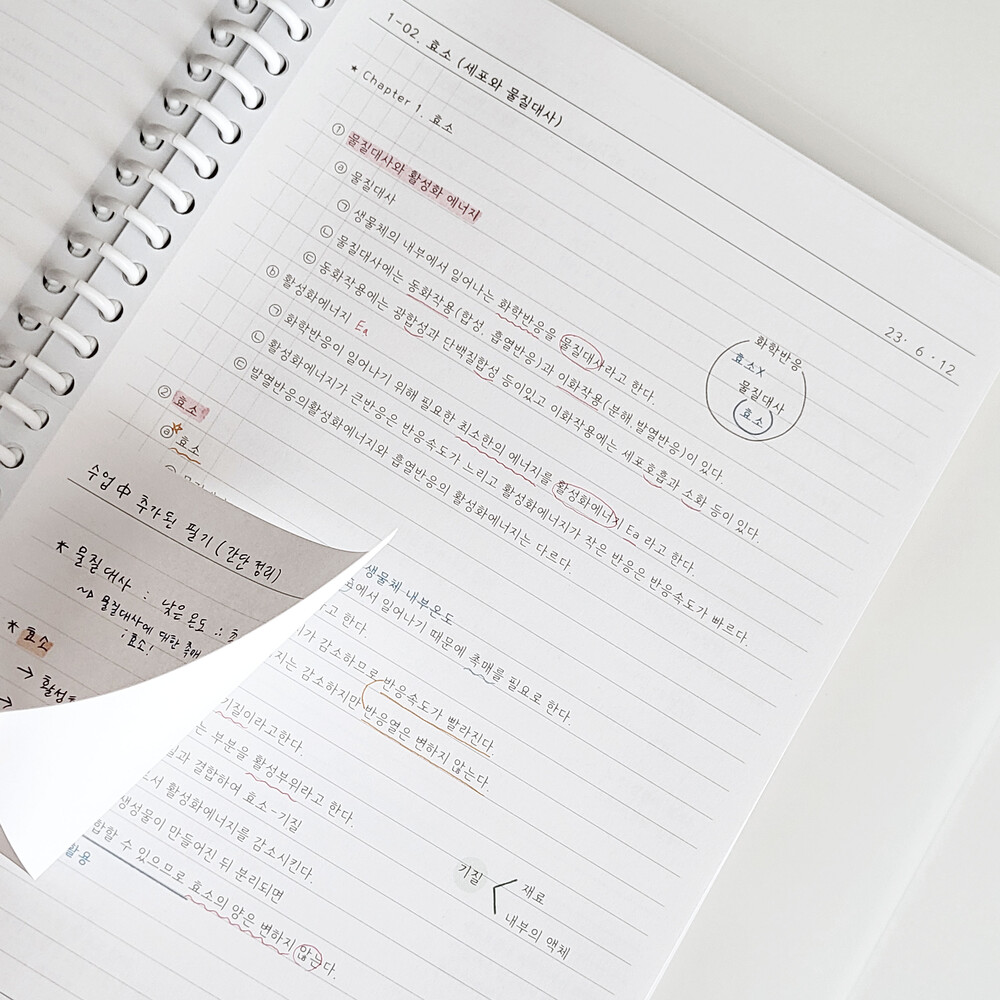 1-02. 효소 (세포와 물질대사)
23. 6. 12
* Chapter 1. 효소
① 물질대사와 활성화 에너지
ⓐ 물질대사
㉠ 생물체의 내부에서 일어나는 화학반응을 물질대사라고 한다.
㉡ 물질대사에는 동화작용(합성, 흡열반응)과 이화작용(분해, 발열반응)이 있다.
㉢ 동화작용에는 광합성과 단백질합성 등이있고 이화작용에는 세포호흡과 소화 등이 있다.
ⓑ 활성화에너지 Ea
㉠ 화학반응이 일어나기 위해 필요한 최소한의 에너지를 활성화에너지 Ea 라고 한다.
㉡ 활성화에너지가 큰반응은 반응속도가 느리고 활성화에너지가 작은 반응은 반응속도가 빠르다.
㉢ 발열반응의활성화에너지와 흡열반응의 활성화에너지는 다르다.
화학반응
효소X
물질대사
효소
② 효소
ⓐ 효소
생물체 내부온도
에서 일어나기 때문에 촉매를 필요로 한다.
고 한다.
가 감소하므로 반응속도가 빨라진다.
지는 감소하지만 반응열은 변하지 않는다.
기질이라고한다.
는 부분을 활성부위라고 한다.
과 결합하여 효소-기질
서 활성화에너지를 감소시킨다.
생성물이 만들어진 뒤 분리되면
합할 수 있으므로 효소의 양은 변하지 않는다.
활용
기질
재료
내부의 액체
수업 中 추가된 필기 (간단 정리)
* 물질대사 : 낮은 온도 ∴
~▷ 물질대사에 대한 촉매
: 효소!
* 효소
→ 활성
→